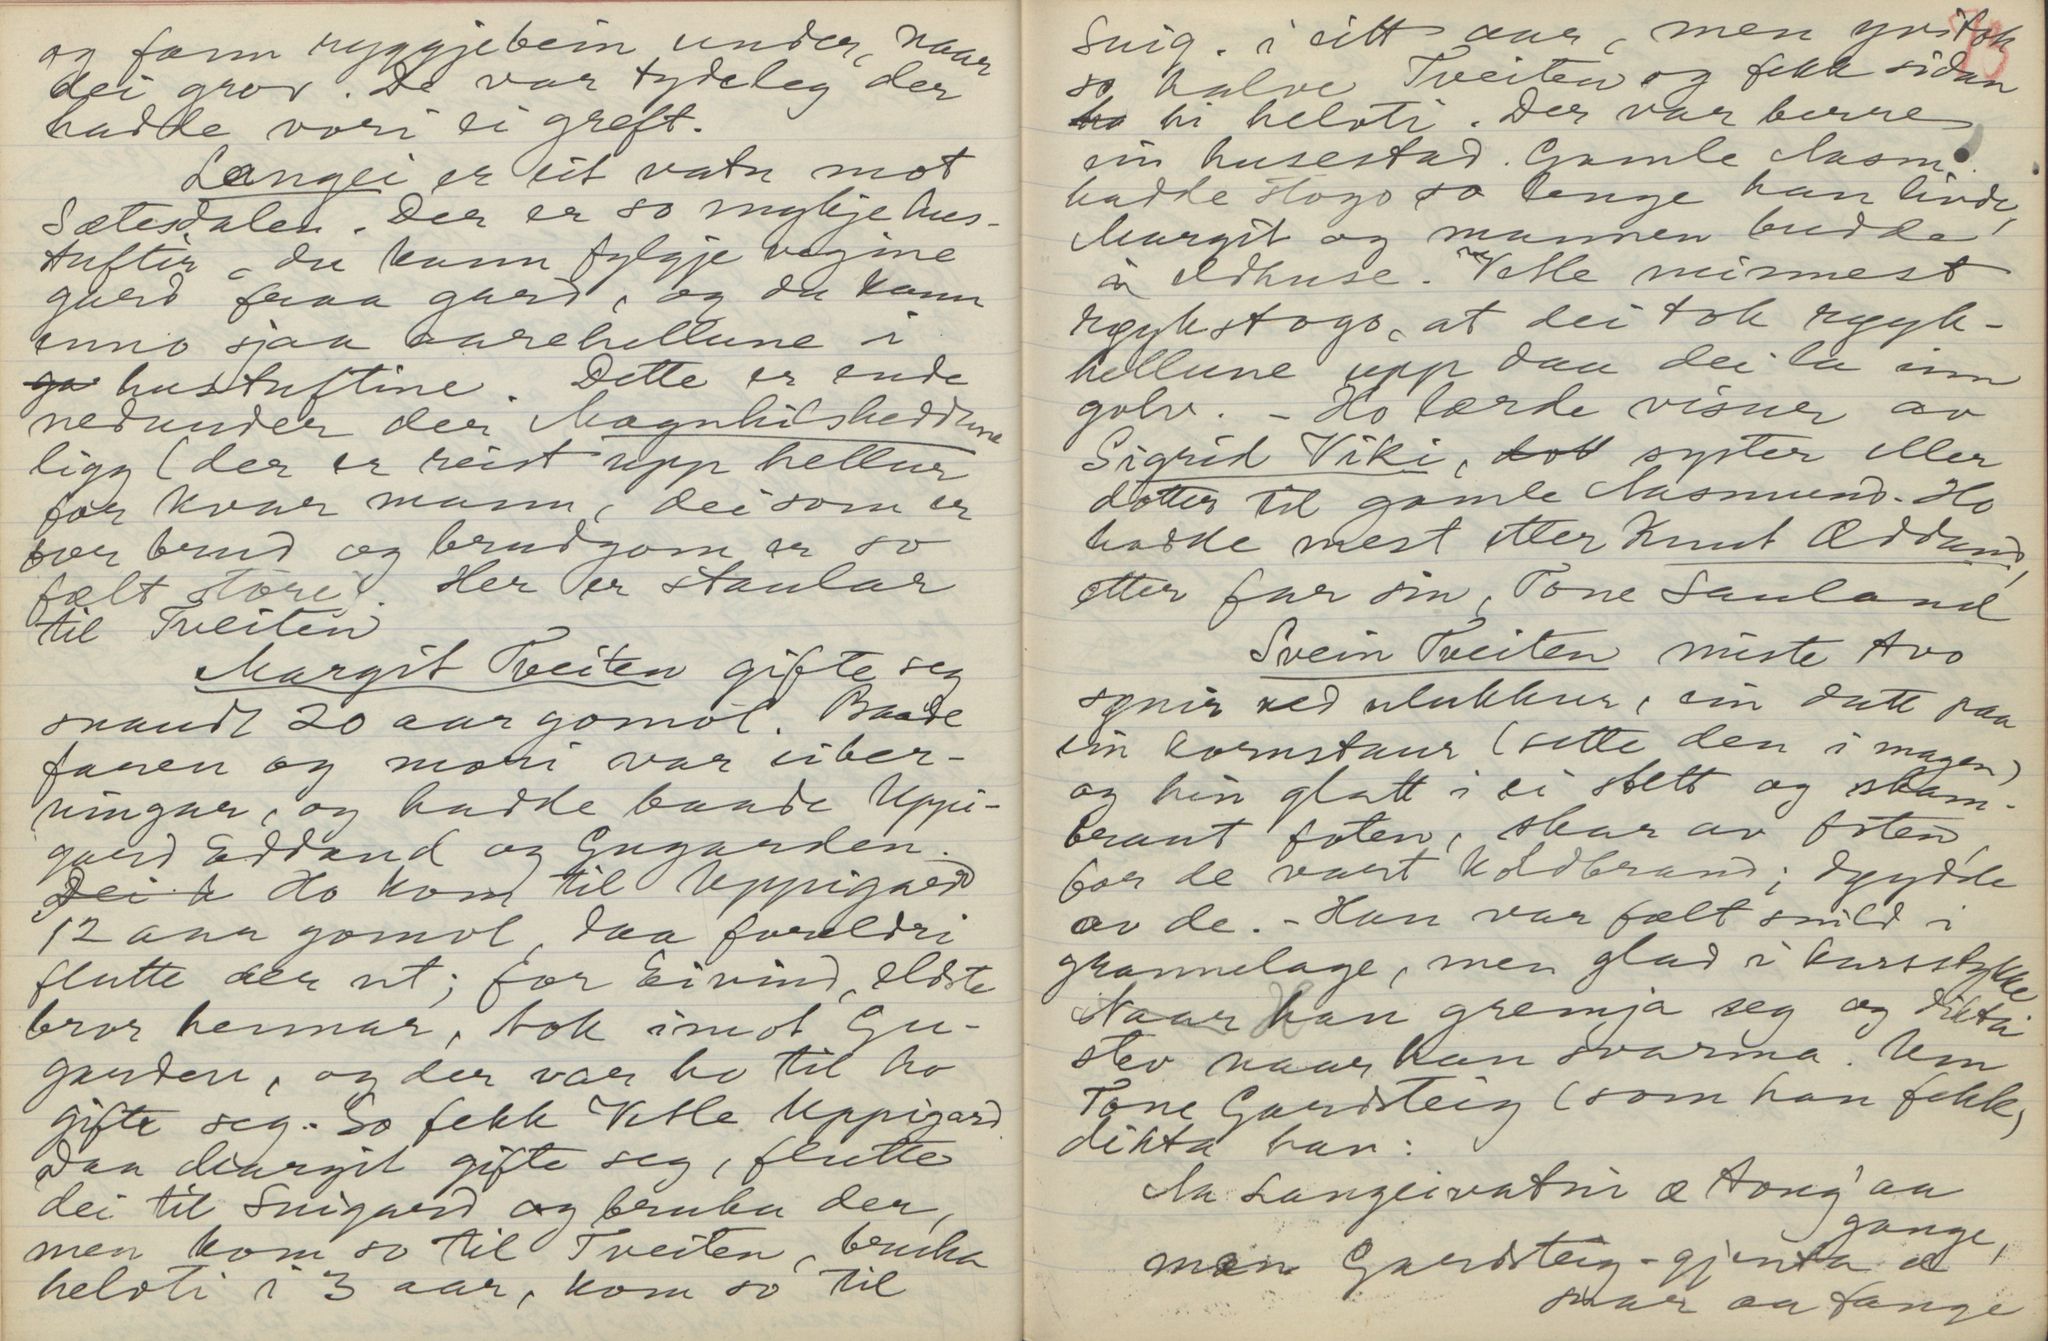 og fann ryggjebein under, naar
dei grov. De var tydeleg der
hadde vori ei greft.
Langei er eit vatn mot
Sætesdalen. Der er so mykje hus-
tuftir, du kann fylgje vegine
gard fraa gard, og du kann
enno sjaa aarehellune i
hustuftine. Dette er ende
nedunder der Magnhilsheddune
ligg (der er reist upp hellur
for kvar mann, dei som er
for brud og brudgom er so
fælt store). Her er staular
til Tveiten
Margit Tveiten gifte seg
snaudt 20 aar gomol. Baade
faren og mori var eiber-
ningar, og hadde baade Uppi-
gard Eddand og Gugarden.
Dei h Ho kom til Uppigard
12 aar gomol, daa foreldri
flutte der ut; for Eivind, eldste
bror hennar, tok imot Gu-
garden, og der var ho til ho
gifte seg. So fekk Vetle Uppigard
Daa Margit gifte seg, flutte
dei til Snigard og bruka der,
men kom so til Tveiten, bruka
heloti i 3 aar, kom so til
73
Snig. i eitt aar, men yvitok
so halve Tveiten og fekk sidan
ho hi heloti. Der var berre
ein husestad. Gamle Aasm.
hadde stogo so lenge han livde,
Margit og mannen budde
i eldhuse. Vetle minnest
røykstogo, at dei tok røyk-
hellune upp daa dei la inn
golv. - Ho lærde visur av
Sigrid Viki, dott syster eller
dotter til gamle Aasmund. Ho
hadde mest etter Knut Æddand,
etter far sin, Tone Sauland
Svein Tveiten miste tvo
synir ved ulukkur, ein datt paa
ein kornstaur (sette den i magen)
og hin glatt i ei slett og skam-
braut foten, skar av foten,
for de vart koldbrand; døydde
av de. - Han var fælt snild i
grannelage, men glad i karsstykke
Naar han gremja seg og dikta
stev naar han svarma. Um
Tone Gardsteig (som han fekk)
dikta han:
Aa Langeivatni æ tong' aa
gange,
men Gardsteig-gjenta æ
snar aa fange